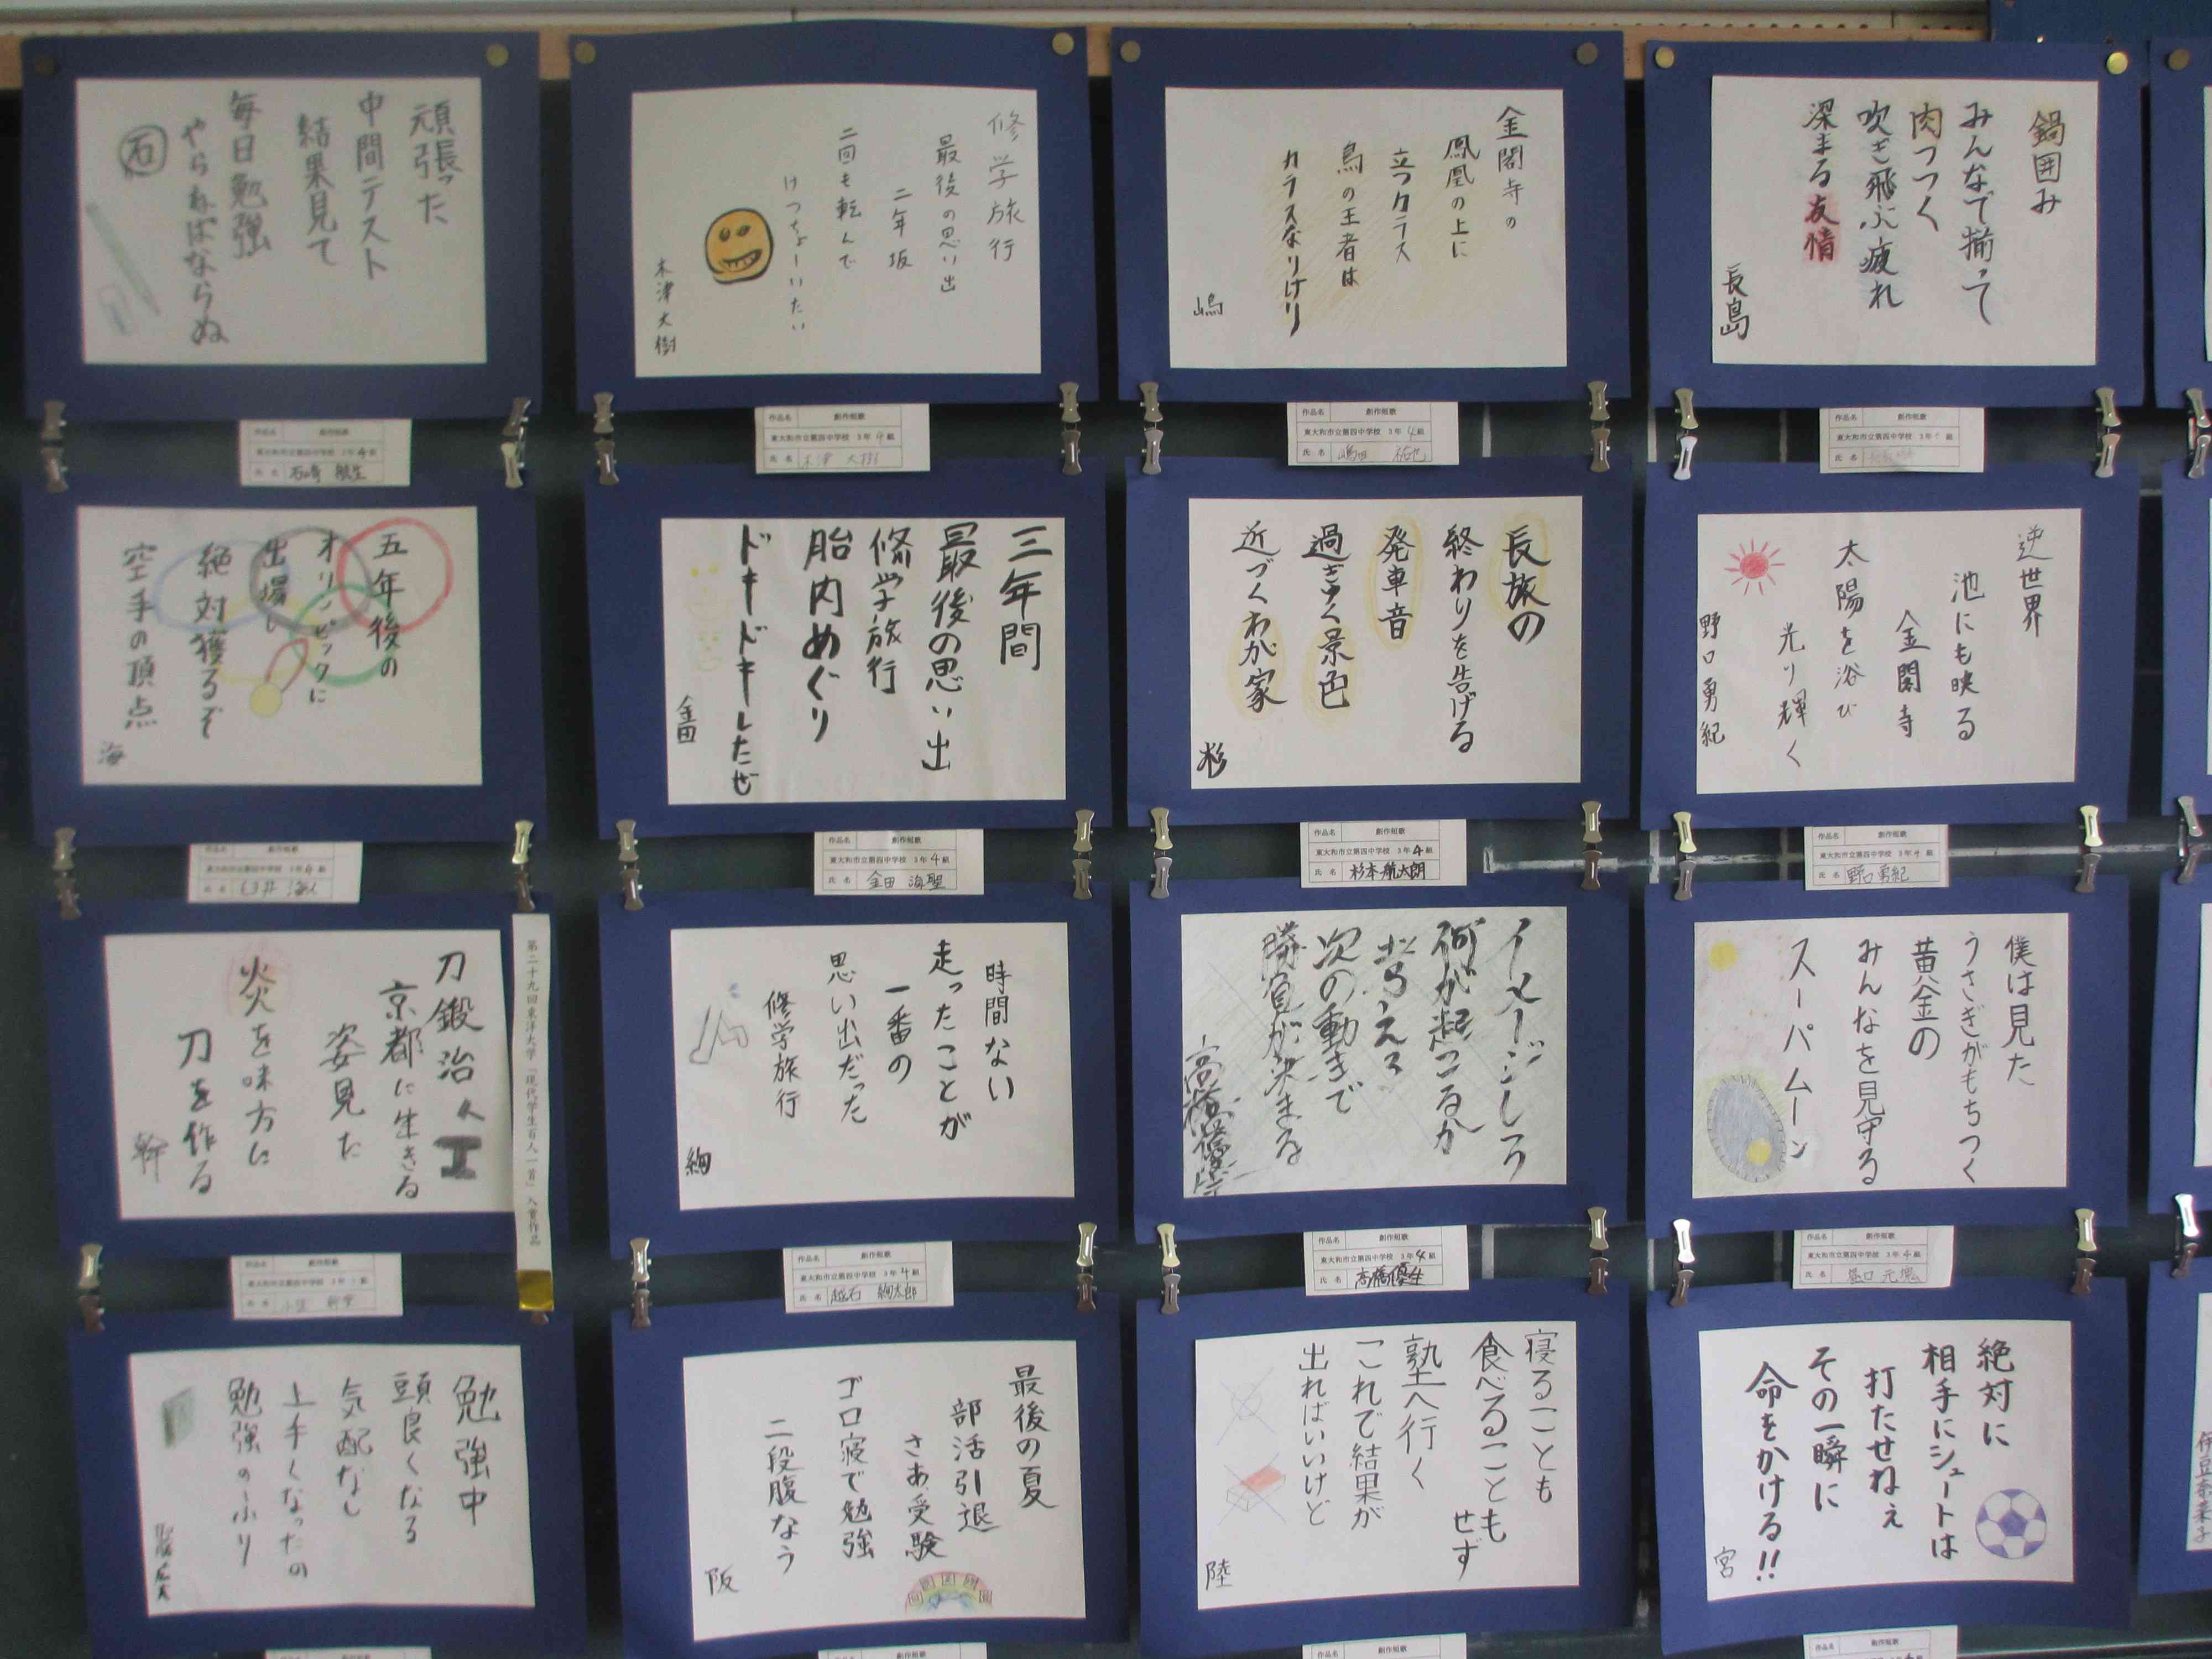 頑張った
中間テスト
結果見て
毎日勉強
やらねばならぬ
石
作品名 創作短歌
東大和市立第四中学校 3年4組
氏名
修学旅行
最後の思い出
二年坂
二回も転んで
けつちょーいたい
木津大樹
作品名 創作短歌
東大和市立第四中学校 3年4組
氏名 木津 大樹
金閣寺の
鳳凰の上に
立つカラス
鳥の王者は
カラスなりけり
嶋
作品名 創作短歌
東大和市立第四中学校 3年4組
氏名 嶋田
鍋囲み
みんなで揃って
肉つつく
吹き飛ぶ疲れ
深まる友情
長島
作品名 創作短歌
東大和市立第四中学校 3年 組
氏名
五年後の
オリンピックに
出場し
絶対獲るぞ
空手の頂点
海
作品名 創作短歌
東大和市立第四中学校 3年4組
氏名
三年間
最後の思い出
修学旅行
胎内めぐり
ドキドキしたぜ
金田
作品名 創作短歌
東大和市立第四中学校 3年4組
氏名 金田 海聖
長旅の
終わりを告げる
発車音
過ぎゆく景色
近づくわが家
杉
作品名 創作短歌
東大和市立第四中学校 3年4組
氏名 杉本航太朗
逆世界
池にも映る
金閣寺
太陽を浴び
光り輝く
野口勇紀
作品名 創作短歌
東大和市立第四中学校 3年4組
氏名 野口勇紀
刀鍛冶
京都に生きる
姿見た
炎を味方に
刀を作る
幹
第二十九回東洋大学「現代学生百人一首」入賞作品
作品名 創作短歌
東大和市立第四中学校 3年 組
氏名
時間ない
走ったことが
一番の
思い出だった
修学旅行
絢
作品名 創作短歌
東大和市立第四中学校 3年4組
氏名 越石 絢太郎
イメージしろ
何が起こるか
考えろ
次の動きで
勝負が決まる
高橋優生
作品名 創作短歌
東大和市立第四中学校 3年4組
氏名 高橋優生
僕は見た
うさぎがもちつく
黄金の
みんなを見守る
スーパームーン
作品名 創作短歌
東大和市立第四中学校 3年4組
氏名
勉強中
頭良くなる
気配なし
上手くなったの
勉強のふり
最後の夏
部活引退
さあ受験
ゴロ寝で勉強
二段腹なう
阪
作品名 創作短歌
寝ることも
食べることも
せず
塾へ行く
これで結果が
出ればいいけど
陸
作品名 創作短歌
絶対に
相手にシュートは
打たせねぇ
その一瞬に
命をかける!!
宮
作品名 創作短歌